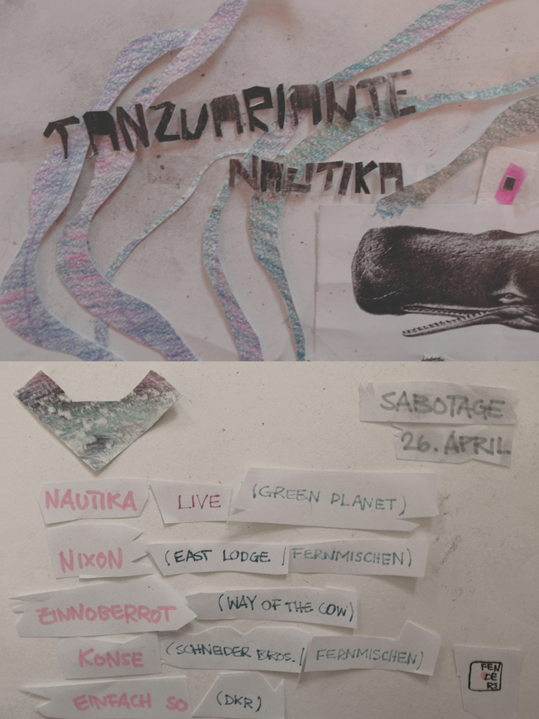 TANZVARIANTE
NAUTIKA
SABOTAGE
26. APRIL
NAUTIKA LIVE (GREEN PLANET)
NIXON (EAST LODGE | FERNMISCHEN)
ZINNOBERROT (WAY OF THE COW)
KONSE (SCHNEIDER BROS. | FERNMISCHEN)
EINFACH SO (DKR)
FEN
DE
RS